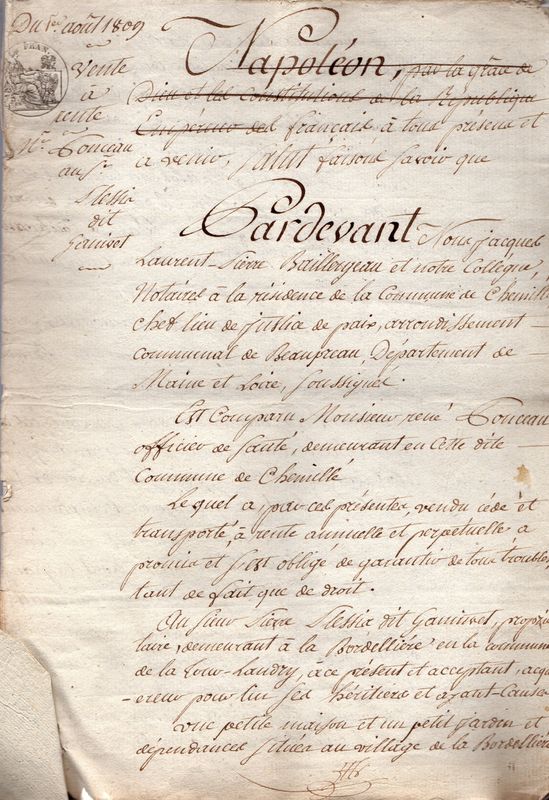 Du 1er août 1809
FRAN
Vente
à
rente
Mr
au Sr
dit
Napoléon, par la grâce de
Dieu et les constitutions de la République
Empereur des français à tous présens et
a venir, Salut faisons savoir que
Pardevant Nous jacques
Laurent-Pierre Baillergeau et notre Collègue,
Notaires à la résidence de la Commune de Chemillé
chef lieu de justice de paix, arrondissement
communal de Beaupreau, Département de
Maine et Loire, Soussignés.
Est Comparu Monsieur rené
officier de Santé, demeurant en Cette dite
Commune de Chemillé
Lequel a, par ces présentes, vendu cédé et
transporté, à rente annuelle et perpetuelle a
promis et s'est obligé de garantir de tous troubles
tant de fait que de droit.
Au Sieur Pierre dit
demeurant à la Bordellière en la commune
de la Tour-Landry, à ce présent et acceptant, acqu
-ereur pour lui ses héritiers et ayant-Cause
une petite maison et un petit jardin et
dépendances Situés au village de la Bordellière